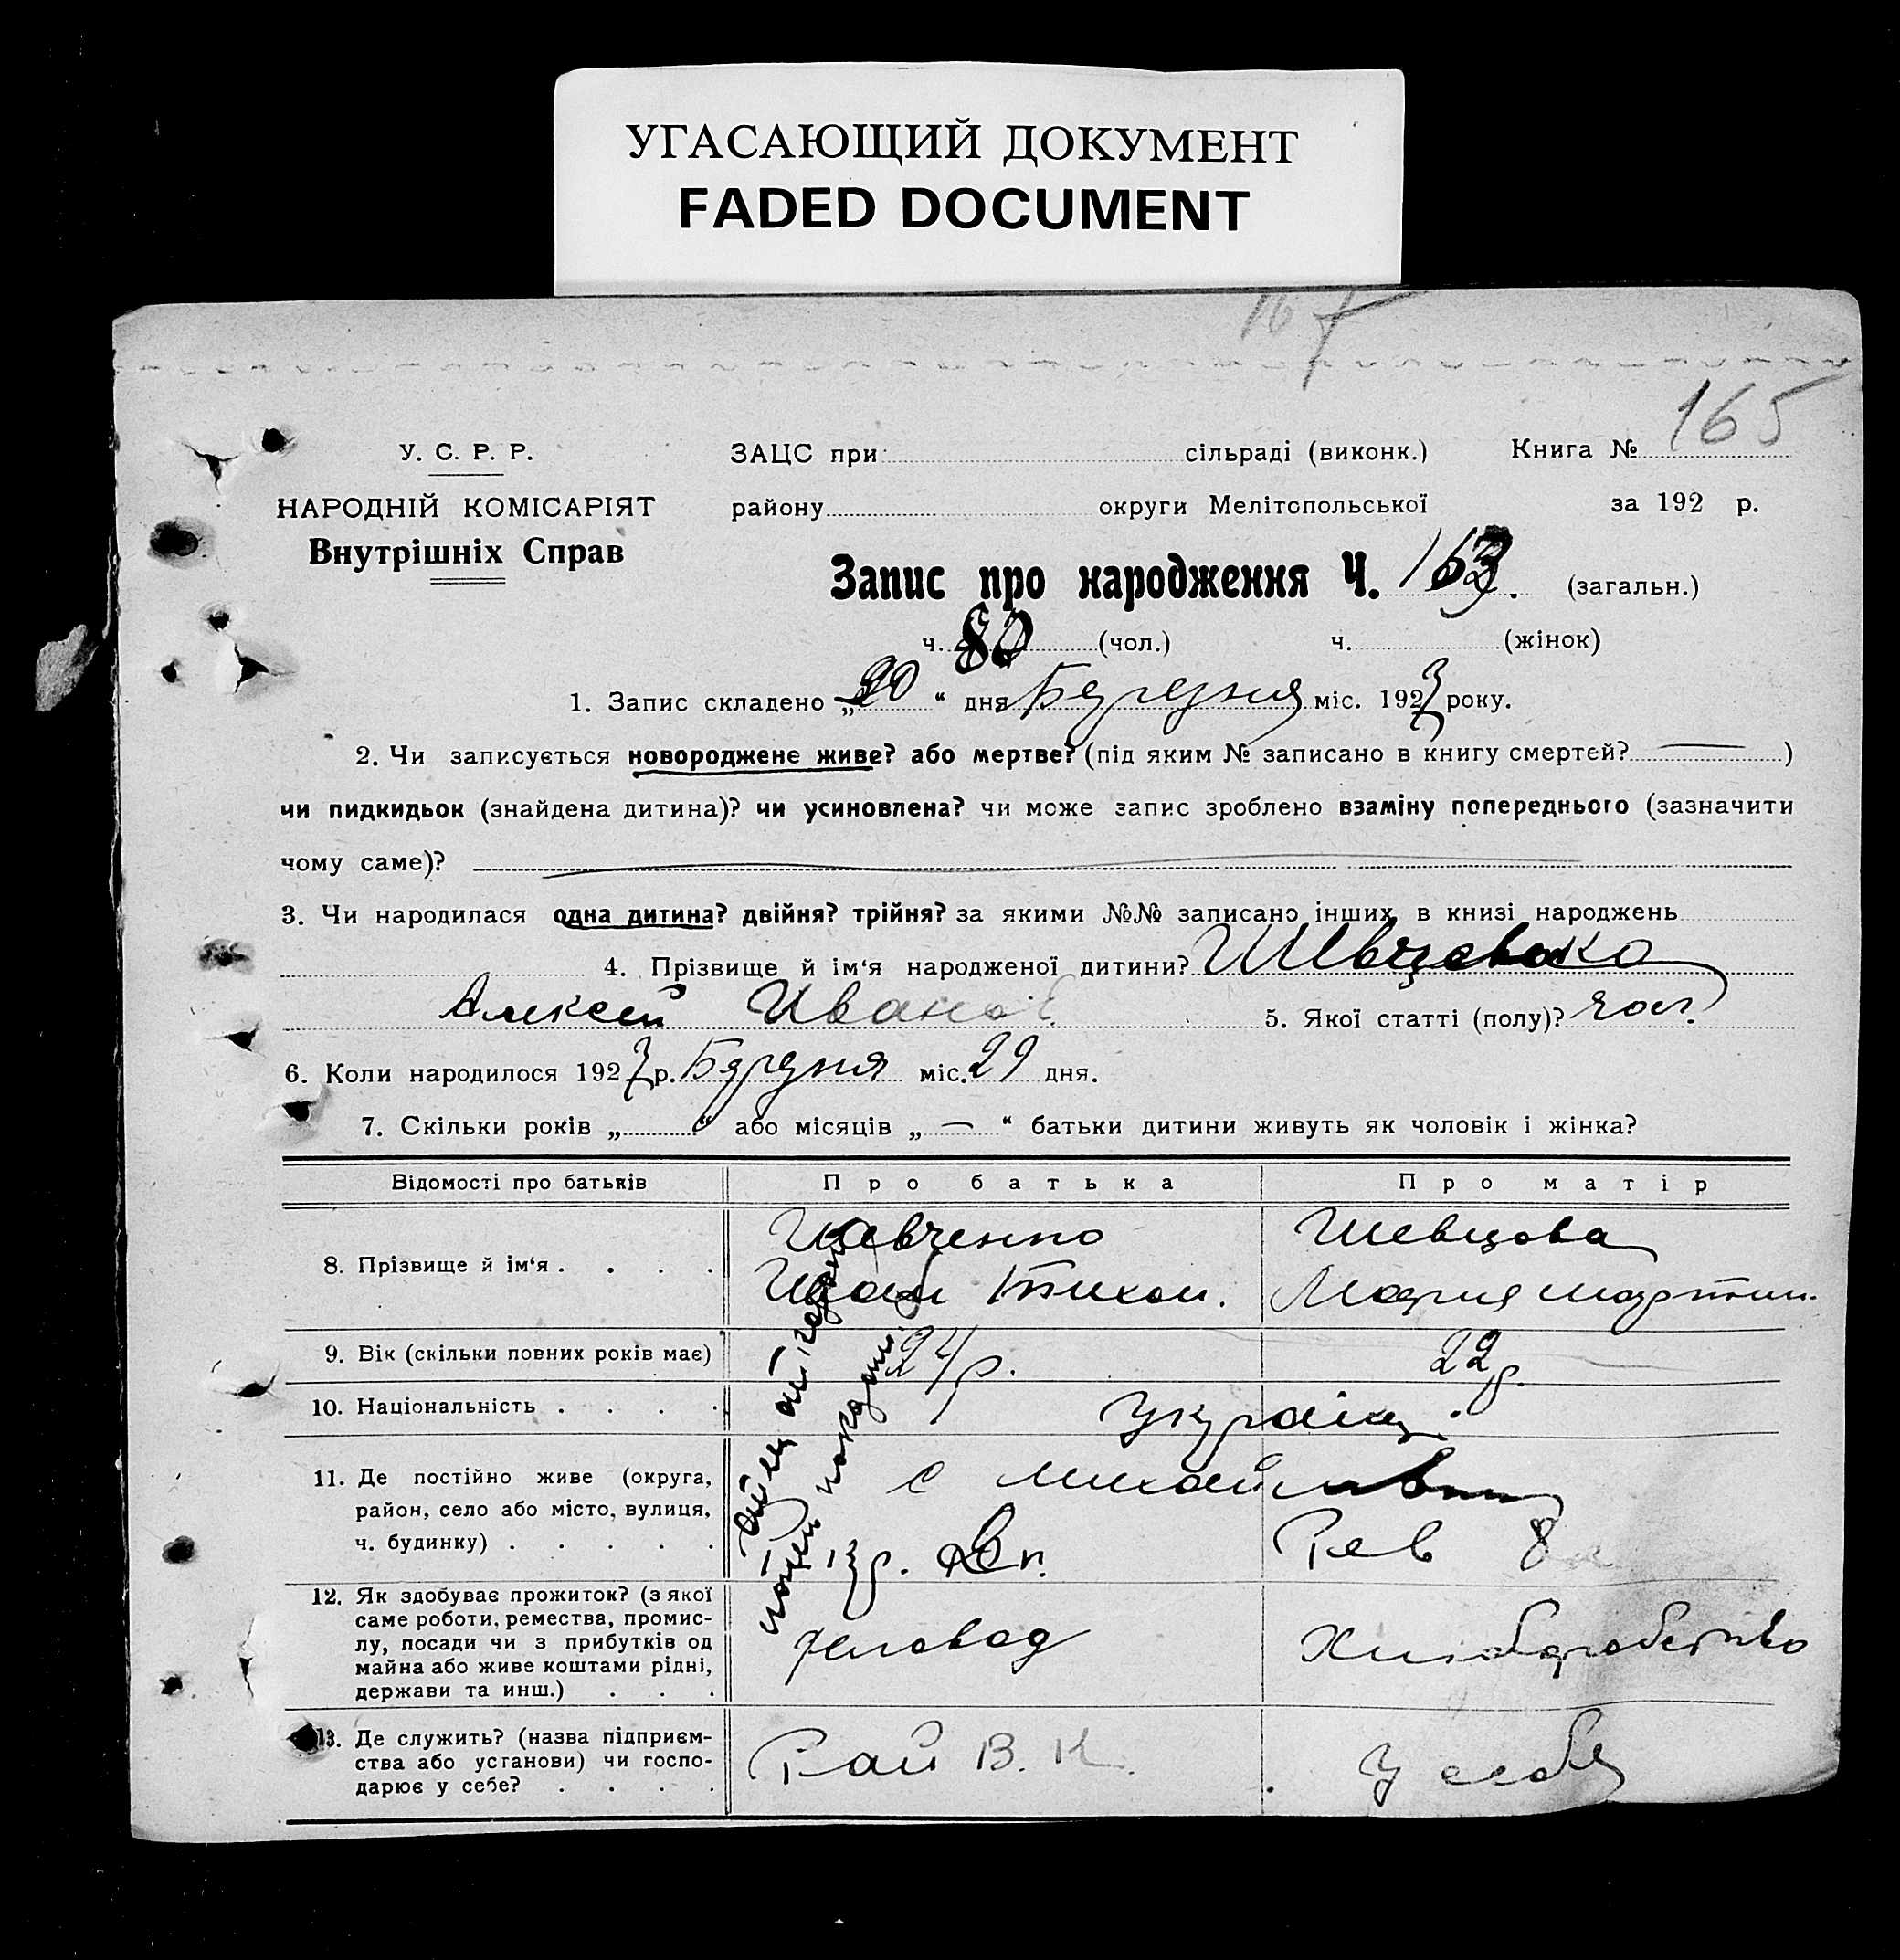 УГАСАЮЩИЙ ДОКУМЕНТ
FADED DOCUMENT
167
165
У. С. Р. Р.
НАРОДНІЙ КОМІСАРІЯТ
Внутрішніх Справ
ЗАЦС при сільраді (виконк.) Книга №
району округи Мелітопольської за 192 р.
Запис про народження Ч. 163. (загальн.)
ч. 80 (чол.) ч. (жінок)
1. Запис складено „ “ дня Березня міс. 1927 року.
2. Чи записується новороджене живе? або мертве? (під яким № записано в книгу смертей? — )
чи пидкидьок (знайдена дитина)? чи усиновлена? чи може запис зроблено взаміну попереднього (зазначити
чому саме)?
3. Чи народилася одна дитина? двійня? трійня? за якими №№ записано інших в книзі народжень
4. Прізвище й ім‘я народженої дитини?
Алексей Иванов 5. Якої статті (полу)? чол.
6. Коли народилося 1927 р. Березня міс. 29 дня.
7. Скільки років „ “ або місяців „ — “ батьки дитини живуть як чоловік і жінка?
Відомості про батьків Про батька Про матір
8. Прізвище й ім‘я . . . . Шевченко Шевцова
Иван Тихон. Мария Мартин.
9. Вік (скільки повних років має) 24 р. 22 р.
10. Національність . . . . Україн.
11. Де постійно живе (округа,
район, село або місто, вулиця,
ч. будинку) . . . . .
с Михайлівка
Рев 8
12. Як здобуває прожиток? (з якої
саме роботи, ремества, промис-
лу, посади чи з прибутків од
майна або живе коштами рідні,
держави та инш.) . . .
Хліборобство
13. Де служить? (назва підприєм-
ства або установи) чи госпо-
дарює у себе? . . . .
Рай В. К. У себе